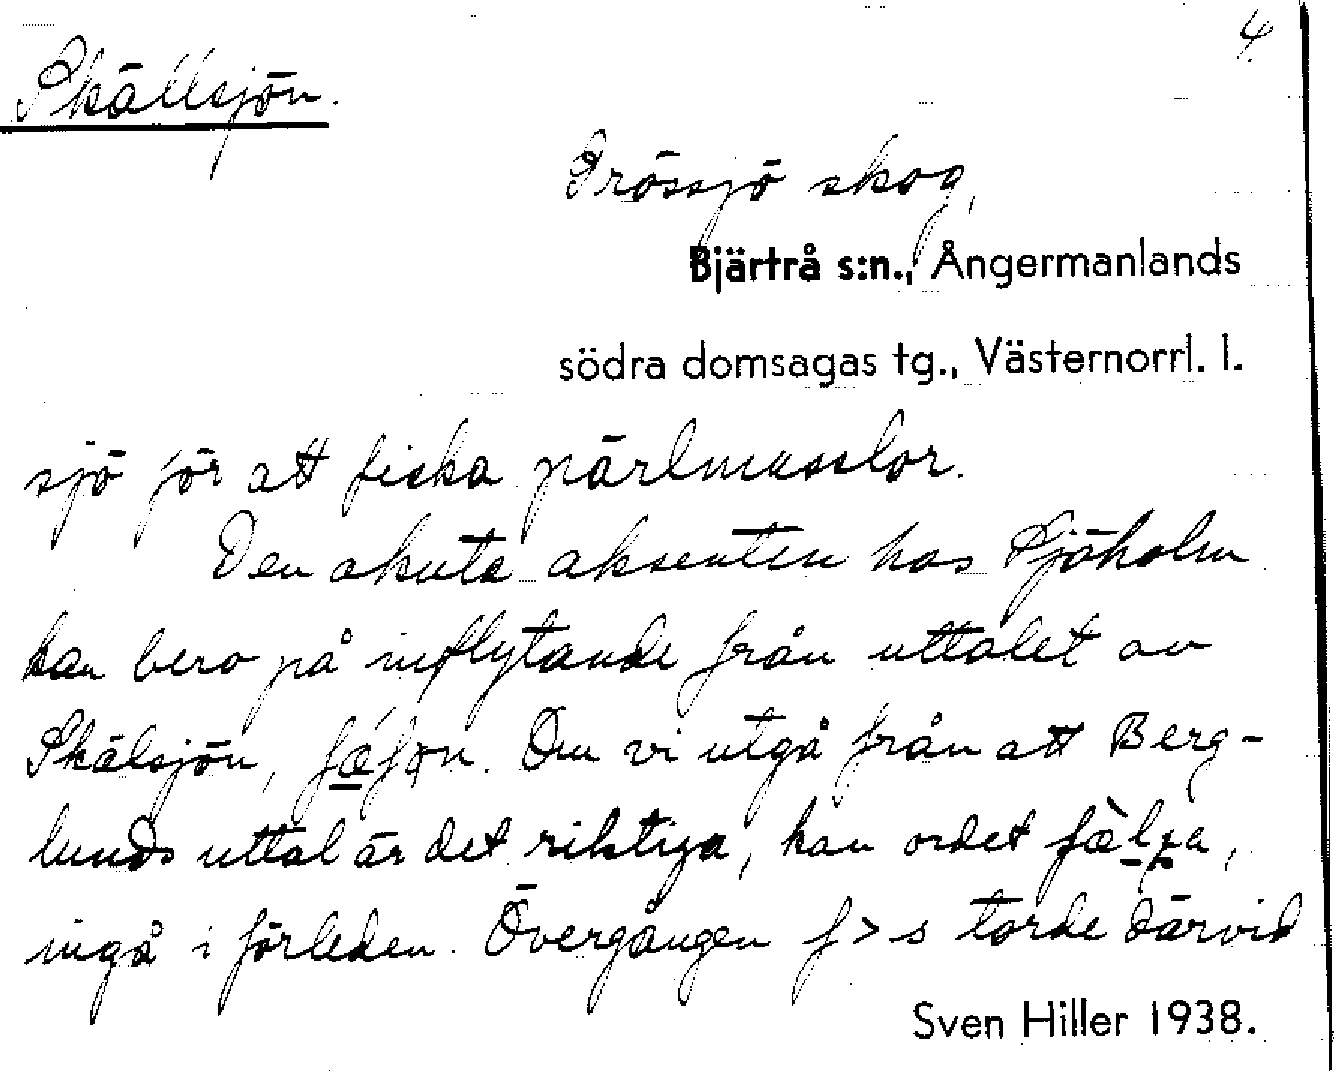 4.
Skällsjön.
Prössjö skog,
Bjärtrå s:n., Ångermanlands
södra domsagas tg., Västernorrl. l.
sjö för att fiska pärlmusslor.
Den akuta aksenten hos Sjöholm
kan bero på inflytande från uttalet av
Skälsjön, Om vi utgå från att Berg-
lunds uttal är det riktiga, kan ordet
ingå i förleden. Övergången ʃ > s torde därvid
Sven Hiller 1938.